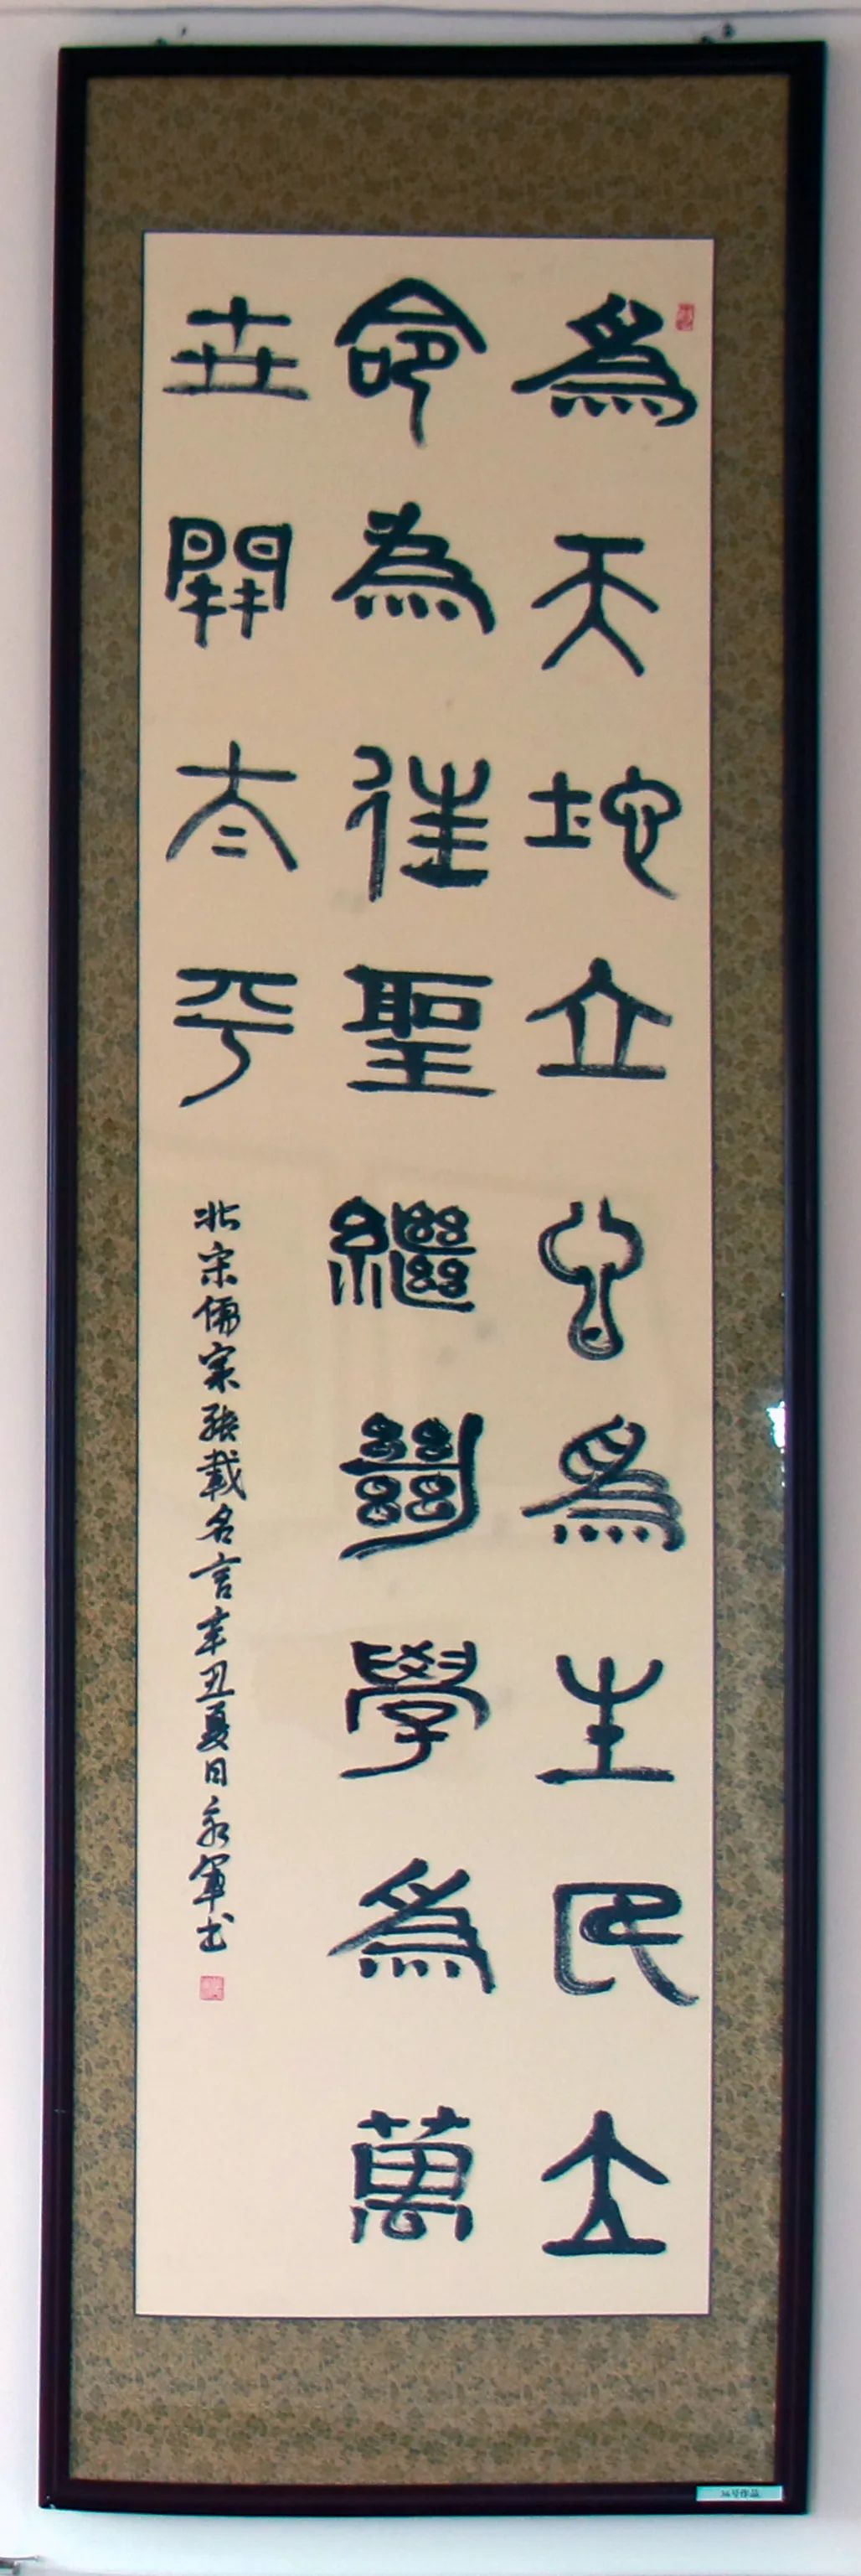 為天地立心為生民立
命為往聖繼𢇍學為萬
世開太平
北宋儒宗張載名言辛丑夏日永軍书
36号作品